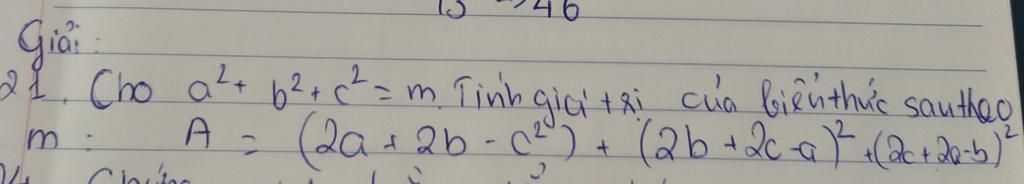 13 → 46
Giải:
21. Cho a² + b² + c² = m. Tính giá trị của biểu thức sau theo
m: A = (2a + 2b - c²) + (2b + 2c - a)² + (2c + 2a - b)²